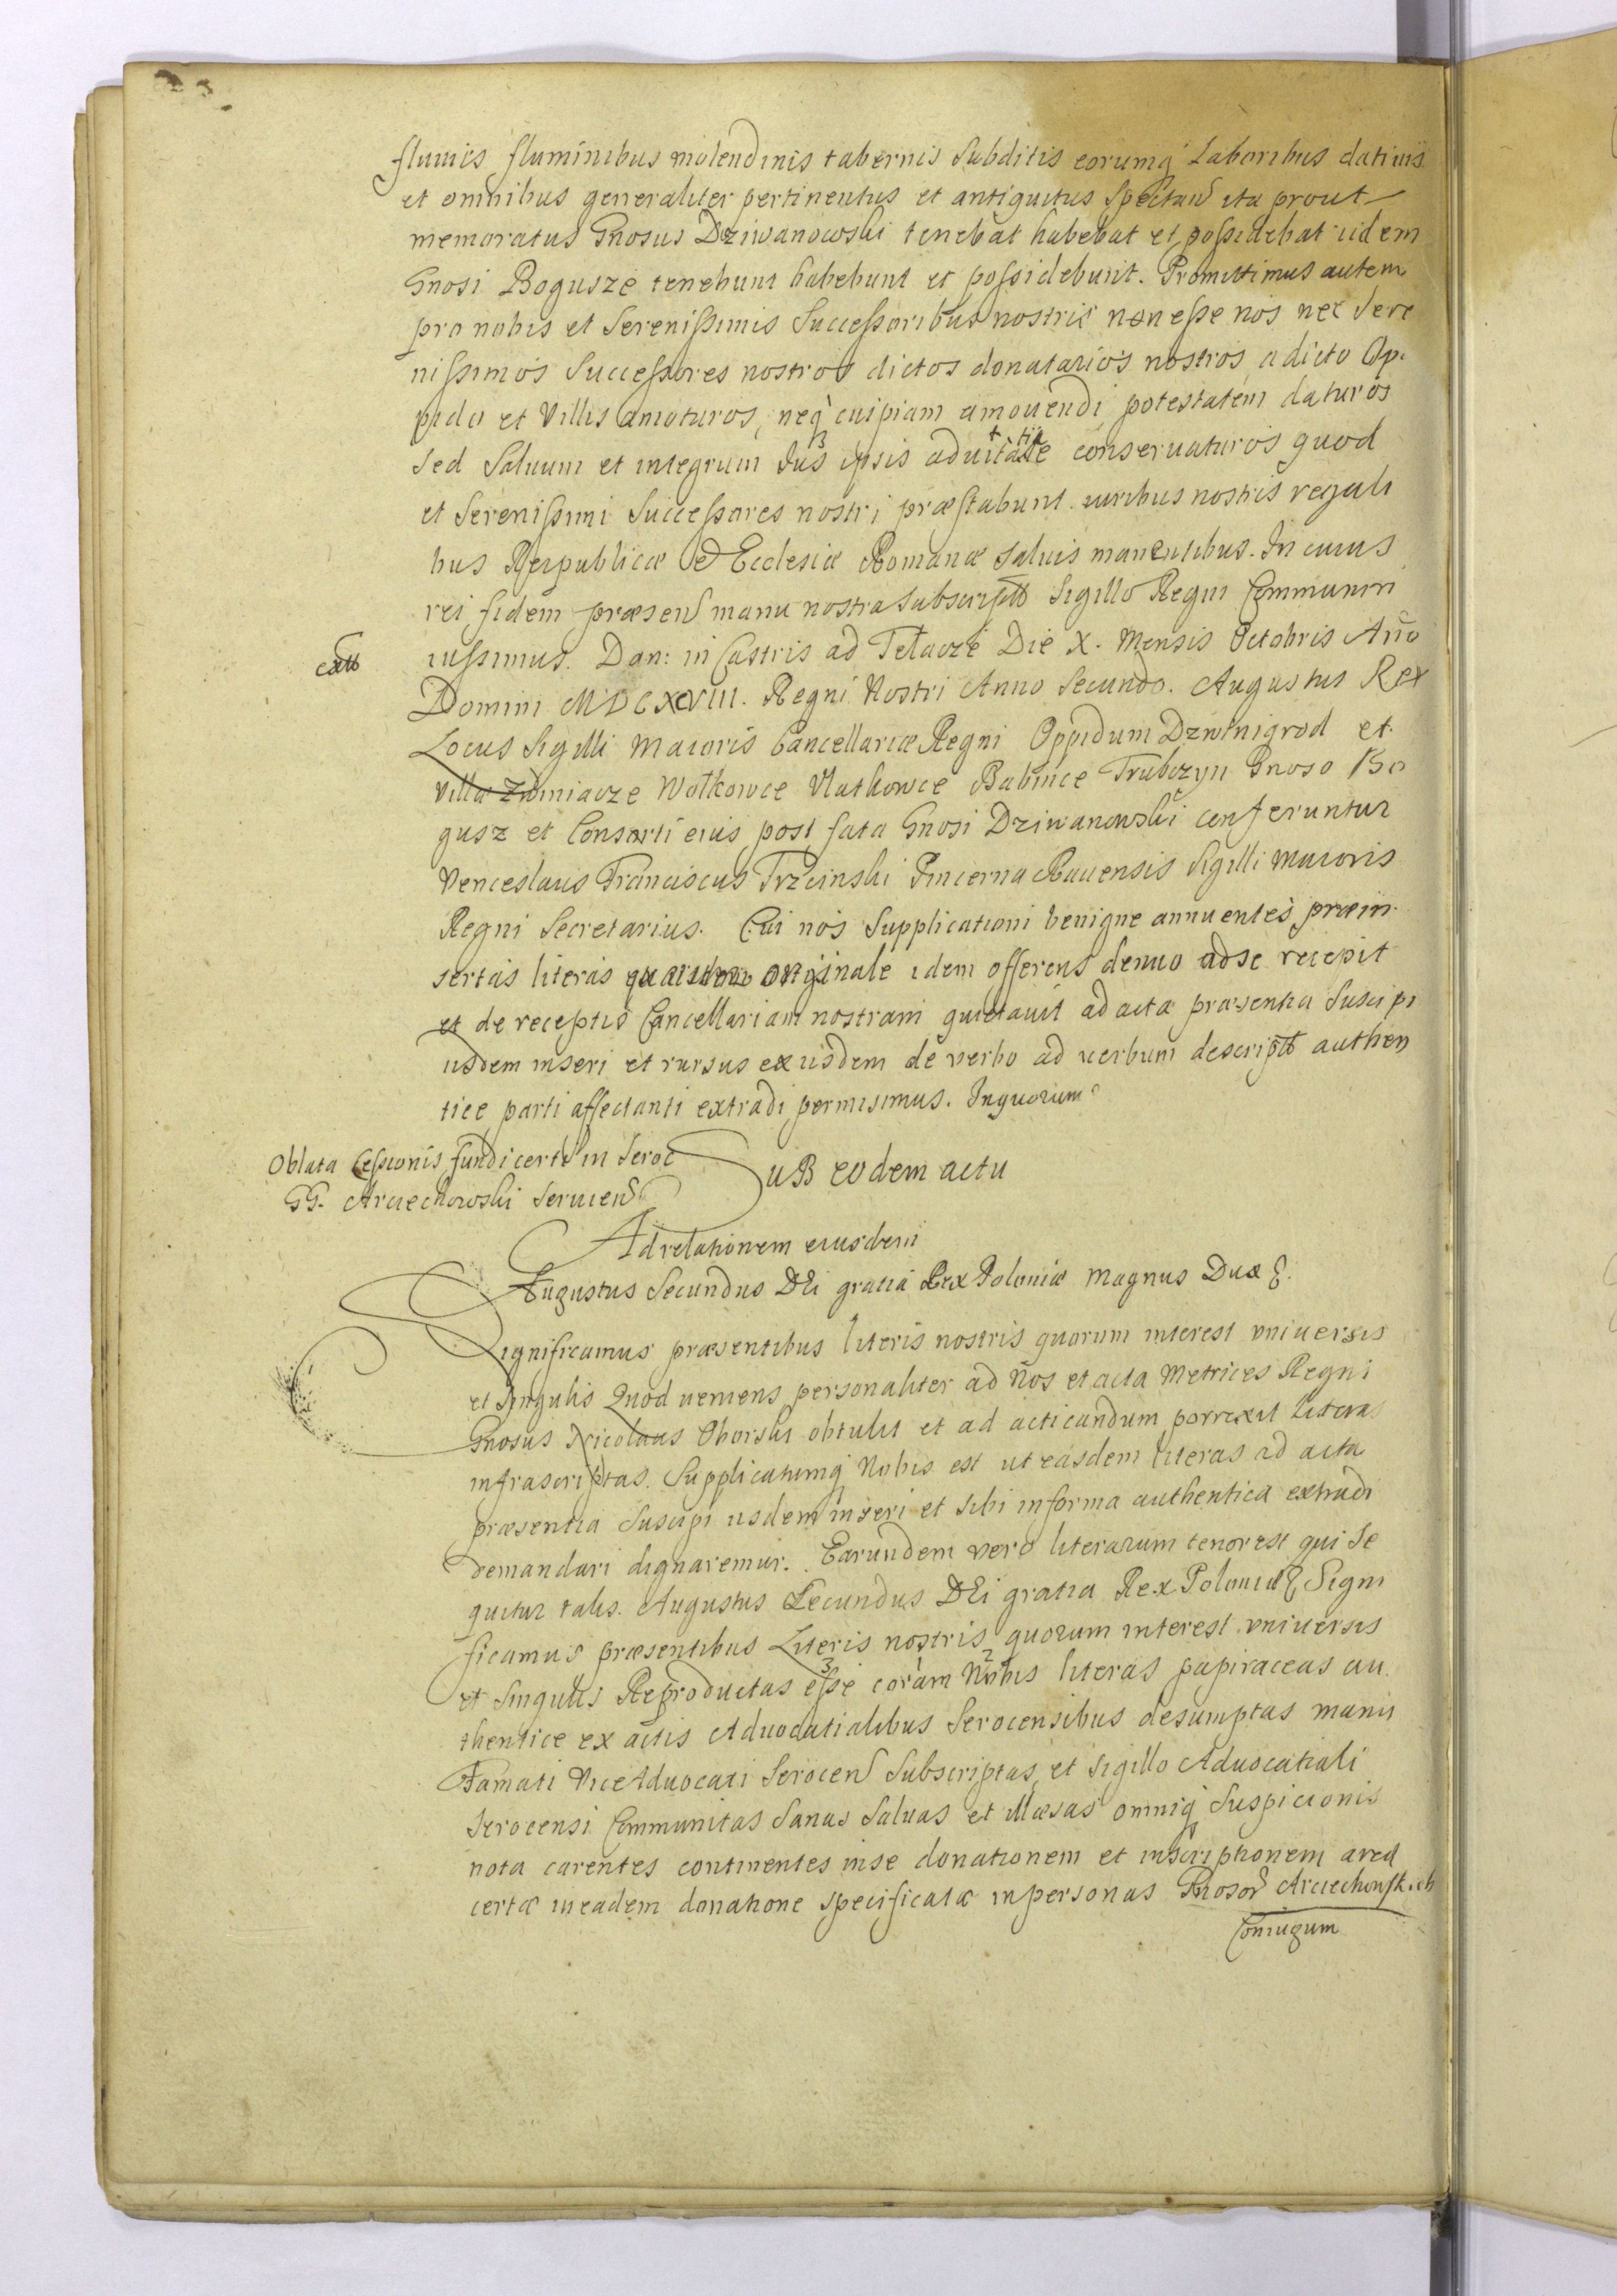 fluuiis fluminibus molendinis tabernis Subditis eorumq Laboribus datiuis
et omnibus generaliter pertinentus et antiquitus Spectan ita prout
memoratus Gnosus Dziwanowski tenebat habebat et possidebat iidem
Gnosi Bogusze tenebunt habebunt et possidebunt. Promittimus autem
pro nobis et Serenissimis Successoribus nostris non esse nos nec Sere
nissimos Successores nostros dictos donatarios nostros a dicto Op.
pido et Villis amoturos, neq cuipiam amouendi potestatem daturos
Sed Saluum et integrum Jus ipsis conseruaturos quod
et Serenissimi Successores nostri præstabunt. iuribus nostris regali
bus Reipublicæ et Ecclesiæ Romanæ saluis manentibus. In cuius
rei fidem præsen manu nostra Subscriptt Sigillo Regni Communiri
extt
iussimus. Dan: in Castris ad Tetacze Die X. Mensis Octobris Año
Domini MDCXCVIII. Regni Nostri Anno Secundo. Augustus Rex
Locus Sigilli Maioris Cancellariæ Regni Oppidum Dzwinigrod et
Villa Zwiniacze Wołkowce Ulatkowce Babince Trubczyn Gnoso Bo
gusz et Consorti eius post fata Gnosi Dziwanowski conferuntur
Venceslaus Franciscus Trzcinski Pincerna Rauensis Sigilli Maioris
Regni Secretarius. Cui nos Supplicationi benigne annuentes præin
sertas literas quarum originale idem offerens denuo ad se recepit
et de receptis Cancellariam nostram quietauit ad acta præsentia Suscipi
iisdem inseri et rursus ex iisdem de verbo ad uerbum descriptt authen
tice parti affectanti extradi permisimus. In quorum
Oblata Cessionis fundi certi in Seroc
GG. Arciechowski Seruien
SuB eodem actu
Ad relationem eiusdem
Augustus Secundus DEi gratia Rex Poloniæ Magnus Dux &.
Significamus præsentibus literis nostris quorum interest vniuersis
et Singulis Quod ueniens personaliter ad Nos et acta Metrices Regni
Gnosus Nicolaus Oborski obtulit et ad acticandum porrexit Literas
infrascriptas. Supplicatumq Nobis est ut easdem literas ad acta
præsentia Suscipi iisdem inseri et sibi in forma authentica extradi
demandari dignaremur. Earundem vero literarum tenor est qui Se
quitur talis. Augustus Secundus DEi gratia Rex Poloniæ & Signi
ficamus præsentibus Literis nostris quorum interest vniuersis
et Singulis Reproductas esse coram Nobis literas papiraceas au
thentice ex actis Aduocatialibus Serocensibus desumptas manu
Famati ViceAduocati Serocen Subscriptas et Sigillo Aduocatiali
Serocensi Communitas Sanas Saluas et illæsas omniq Suspicionis
nota carentes continentes in se donationem et inscriptionem areæ
certæ in eadem donatione specificatæ in personas Gnosor Arciechowskich
Coniugum